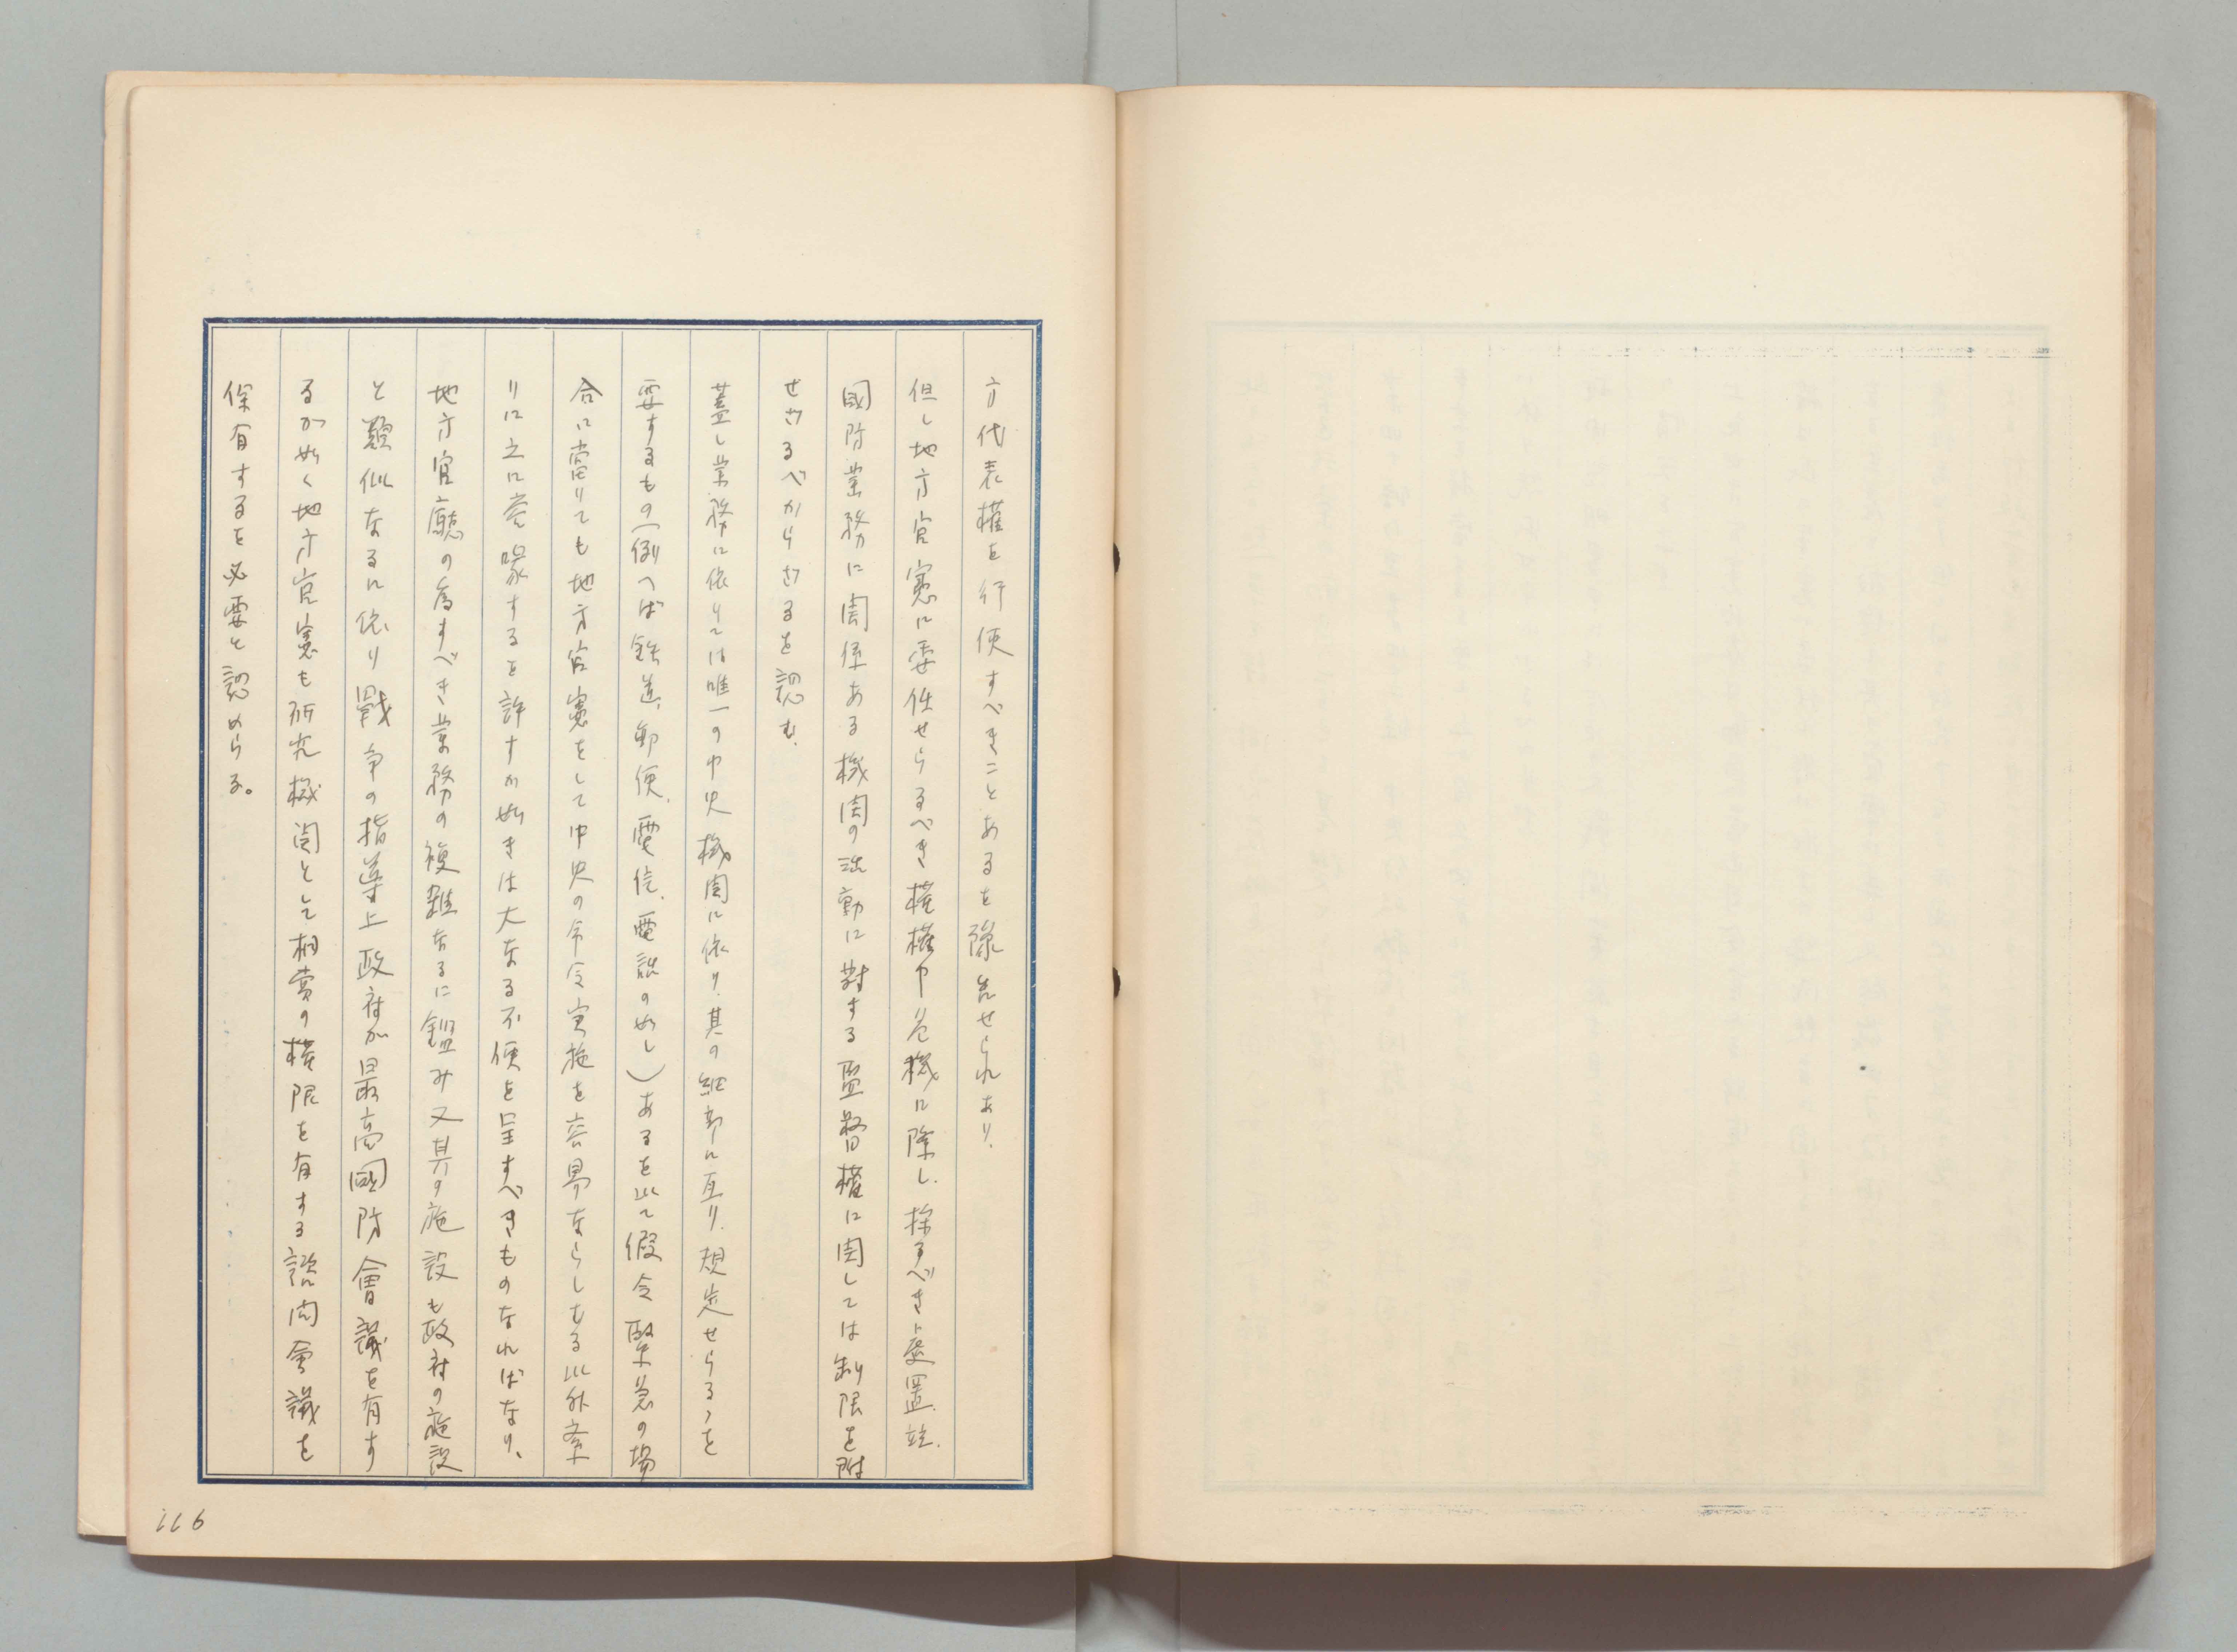 方代表權を行使すべきことあるを豫告せられあり、
但し地方官憲に委任せらるべき權
國防業務に関係ある機関の活動に對する監督權に関しては制限を附
せざるべからざるを認む、
蓋し業務に依りては唯一の中央機関に依り、其の細部に亙り、規定せらるゝを
要するもの(例へば鉄道、郵便、電信、電話の如し)あるを以て假令緊急の場
合に當りても地方官憲をして中央の命令実施を容易ならしむる以外妄
りに之に容喙するを許すが如きは大なる不便を呈すべきものなればなり、
地方官廳の為すべき業務の複雑なるに鑑み又其の施設も政府の施設
と類似なるに依り戰争の指導上政府が最高國防會議を有す
るが如く地方官憲も研究機関として相當の權限を有する諮問會議を
保有するを必要と認めらる。
116